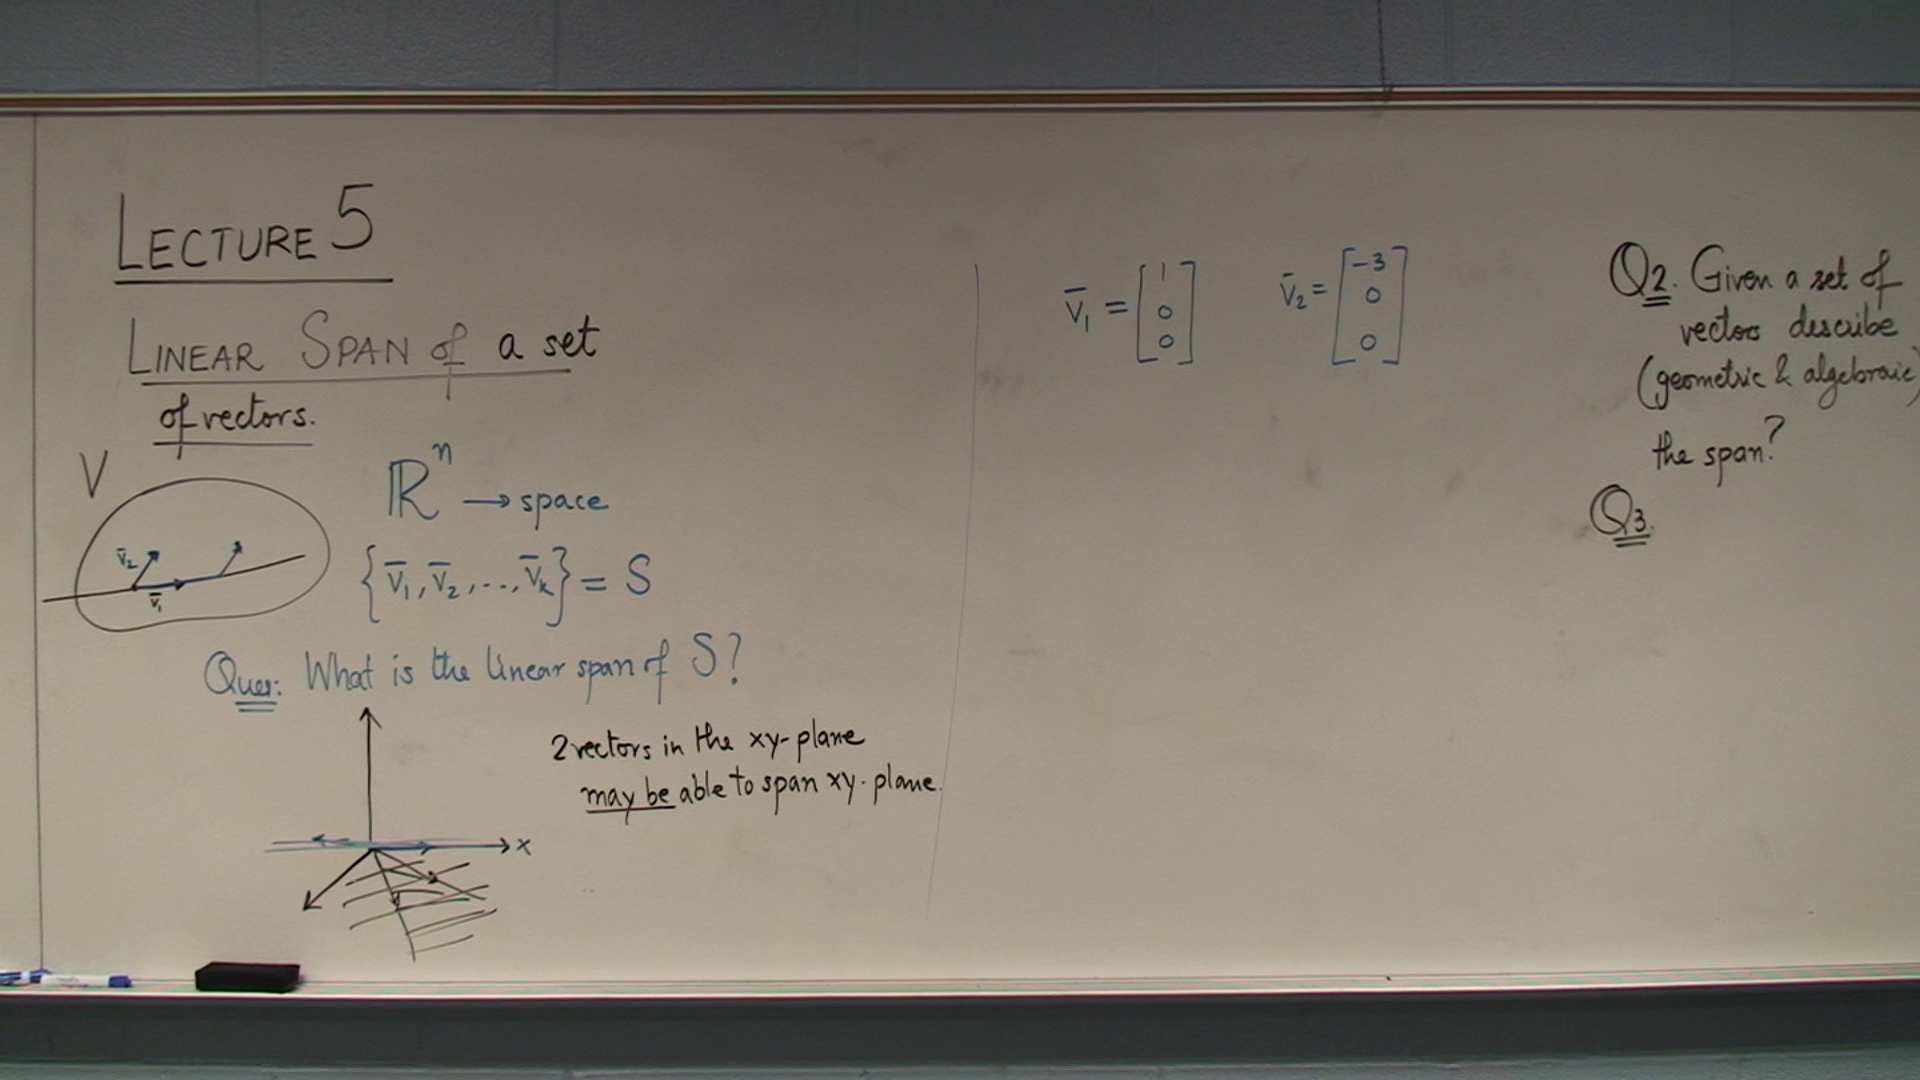 LECTURE 5
LINEAR SPAN of a set
of vectors.
V
ℝⁿ → space
v̄₂
v̄₁
{v̄₁, v̄₂, ..., v̄ₖ} = S
Ques: What is the linear span of S?
2 vectors in the xy-plane
may be able to span xy-plane.
x
v̄₁ = [1 0 0] v̄₂ = [-3 0 0]
Q2. Given a set of
vectors describe
(geometric & algebraic)
the span?
Q3.